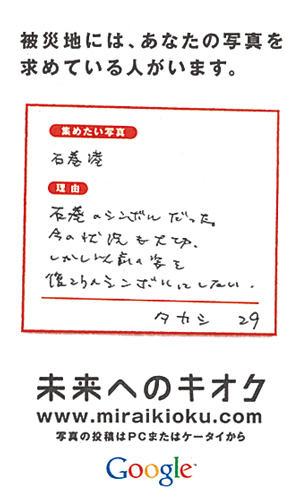 被災地には、あなたの写真を
求めている人がいます。
集めたい写真
石巻港
理由
石巻のシンボルだった。
今の状況も大切。
しかし以前の姿を
シンボルにしたい。
タカシ 29
未来へのキオク
www.miraikioku.com
写真の投稿はPCまたはケータイから
Google